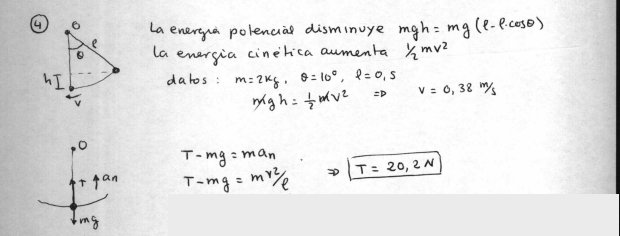 ④
O
θ
l
h
v
La energía potencial disminuye mgh = mg (l - l·cosθ)
La energía cinética aumenta ½ mv²
datos : m = 2 kg, θ = 10°, l = 0,5
mgh = ½ mv² ⇒ v = 0,38 m/s
O
T
an
mg
T - mg = man
T - mg = m v²/l ⇒ T = 20,2 N